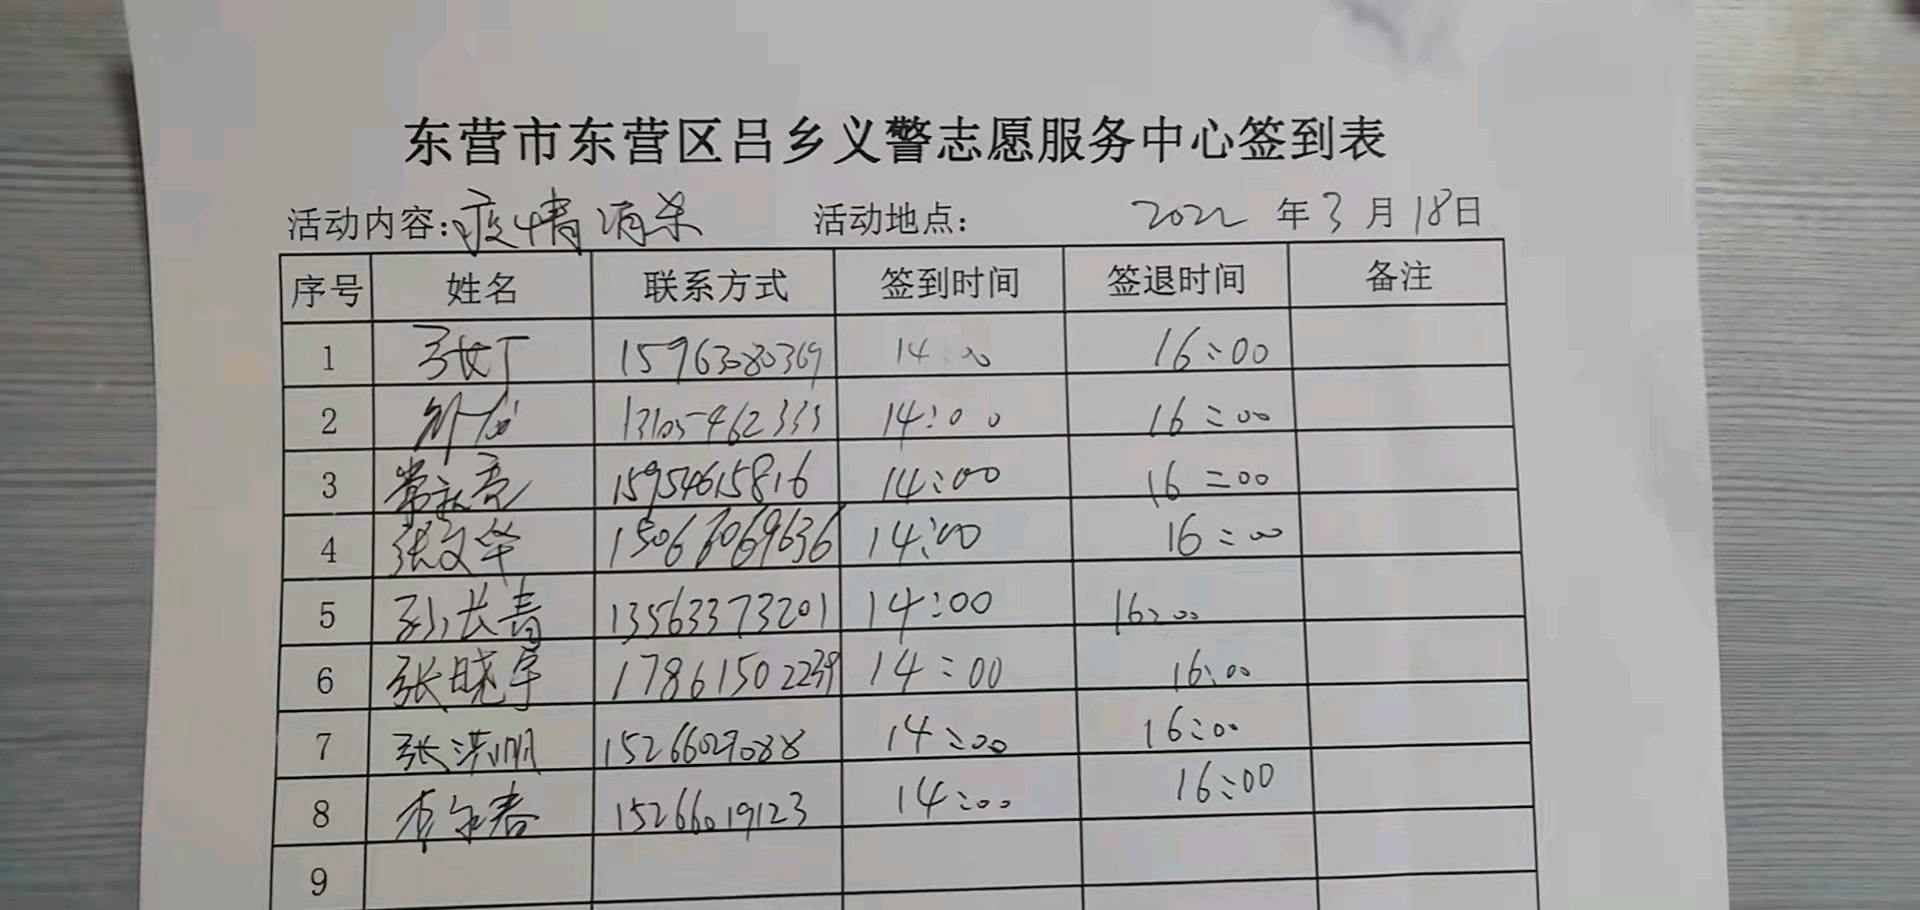 东营市东营区吕乡义警志愿服务中心签到表
活动内容:疫情消杀 活动地点: 2022 年 3 月 18 日
序号 姓名 联系方式 签到时间 签退时间 备注
1 15963080369 14:00 16:00
2 14:00 16:00
3 常永亮 15954615816 14:00 16:00
4 张文华 15067069636 14:00 16:00
5 孙长青 13563373201 14:00 16:00
6 张晓宇 17861502239 14:00 16:00
7 张洪帆 15266029088 14:00 16:00
8 15266019123 14:00 16:00
9